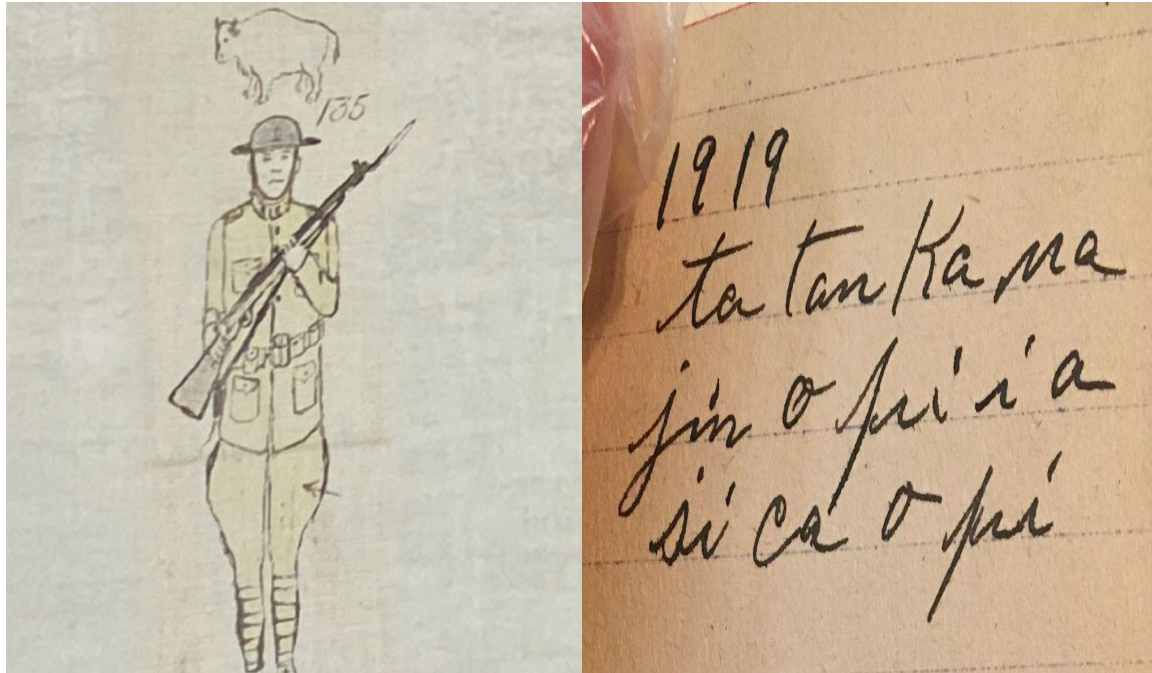 135
1919
ta tan Ka na
jin o pi i a
si ca o pi